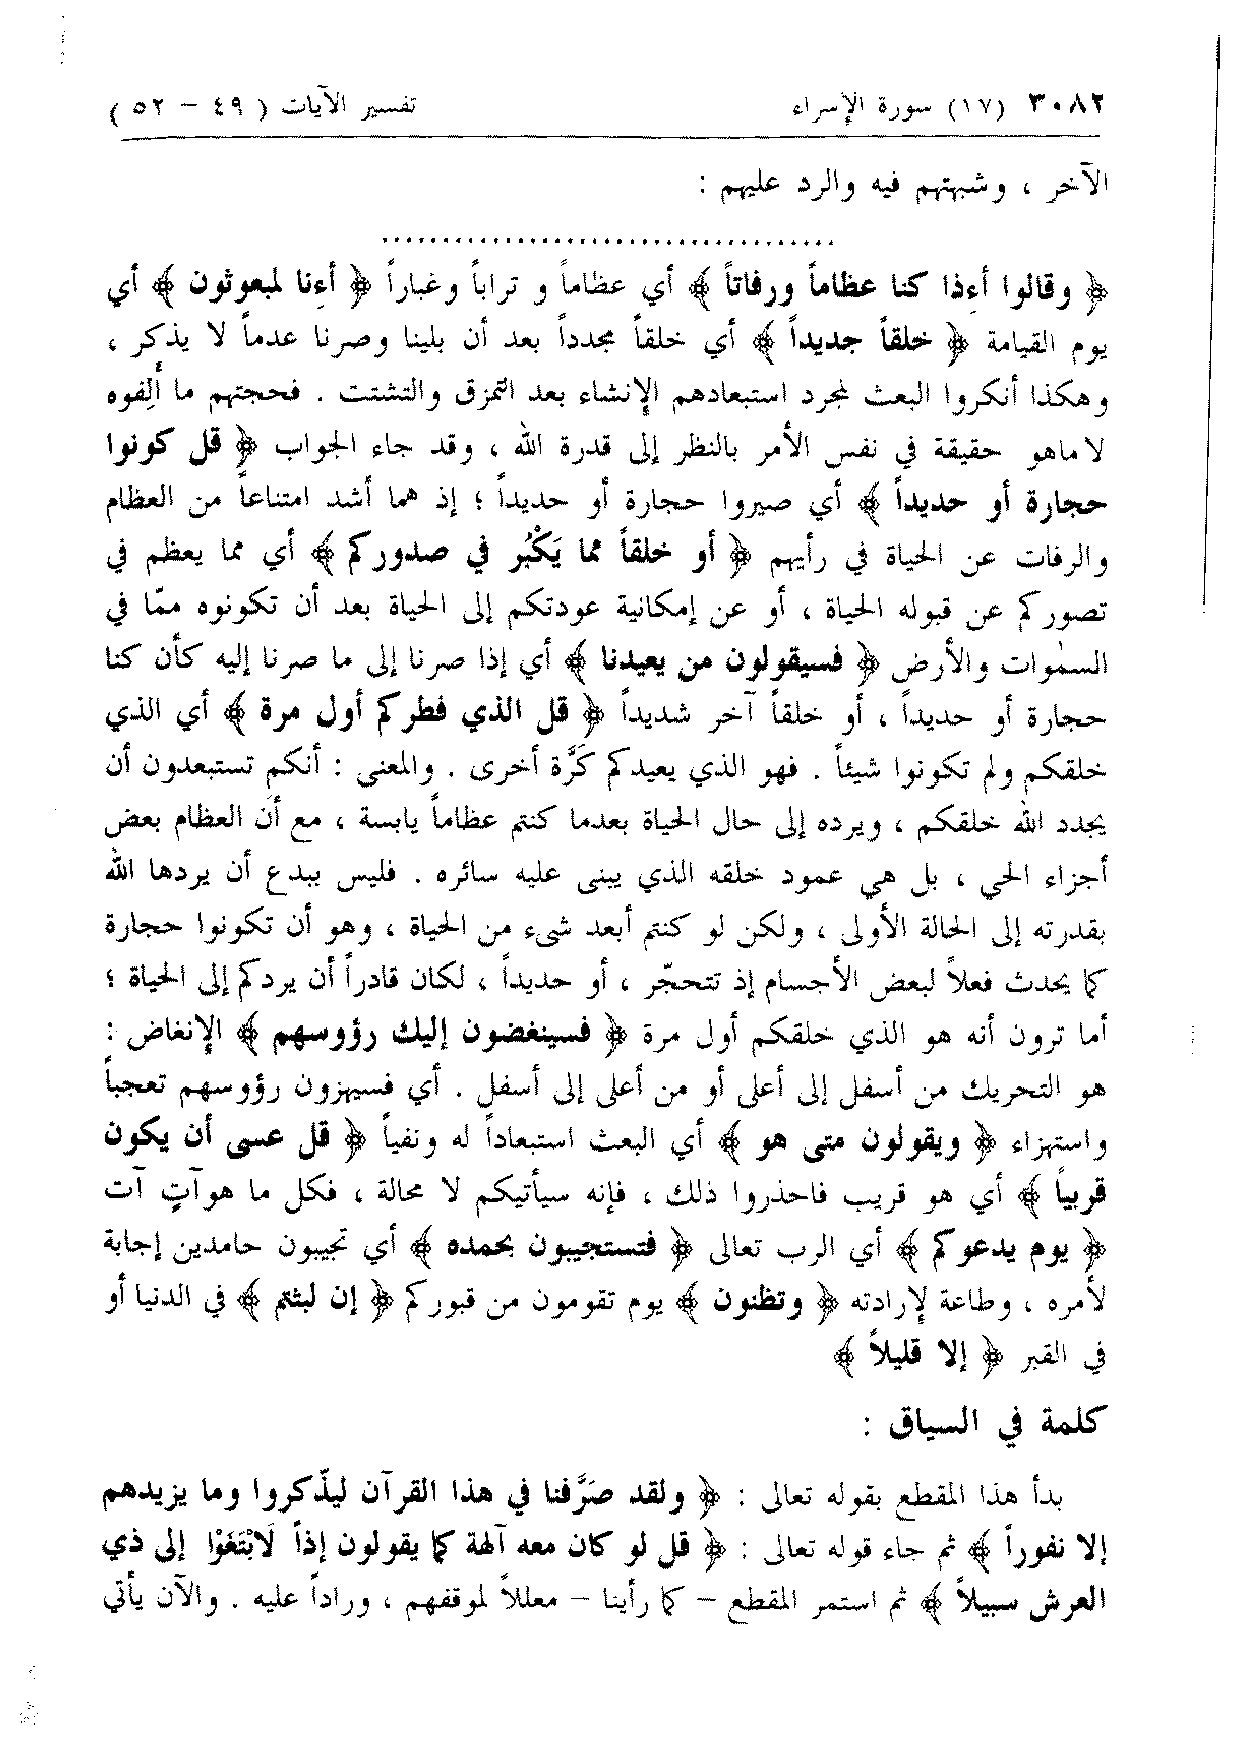 ٣٠٨٢ (١٧) سورة الإسراء تفسير الآيات ( ٤٩ - ٥٢ )
الآخر ، وشبهتهم فيه والرد عليهم :
..................................
﴿ وقالوا أءِذا كنا عظاماً ورفاتاً ﴾ أي عظاماً و تراباً وغباراً ﴿ أءِنا لمبعوثون ﴾ أي
يوم القيامة ﴿ خلقاً جديداً ﴾ أي خلقاً مجدداً بعد أن بلينا وصرنا عدماً لا يذكر ،
وهكذا أنكروا البعث لمجرد استبعادهم الإنشاء بعد التمزق والتشتت . فحجتهم ما أُلِفوه
لاماهو حقيقة في نفس الأمر بالنظر إلى قدرة الله ، وقد جاء الجواب ﴿ قل كونوا
حجارة أو حديداً ﴾ أي صيروا حجارة أو حديداً ؛ إذ هما أشد امتناعاً من العظام
والرفات عن الحياة في رأيهم ﴿ أو خلقاً مما يَكْبُر في صدوركم ﴾ أي مما يعظم في
تصوركم عن قبوله الحياة ، أو عن إمكانية عودتكم إلى الحياة بعد أن تكونوه ممّا في
السمٰوات والأرض ﴿ فسيقولون من يعيدنا ﴾ أي إذا صرنا إلى ما صرنا إليه كأن كنا
حجارة أو حديداً ، أو خلقاً آخر شديداً ﴿ قل الذي فطركم أول مرة ﴾ أي الذي
خلقكم ولم تكونوا شيئاً . فهو الذي يعيدكم كَرَّة أخرى . والمعنى : أنكم تستبعدون أن
يجدد الله خلقكم ، ويرده إلى حال الحياة بعدما كنتم عظاماً يابسة ، مع أن العظام بعض
أجزاء الحي ، بل هي عمود خلقه الذي يبنى عليه سائره . فليس ببدع أن يردها الله
بقدرته إلى الحالة الأولى ، ولكن لو كنتم أبعد شيء من الحياة ، وهو أن تكونوا حجارة
كما يحدث فعلاً لبعض الأجسام إذ تتحجّر ، أو حديداً ، لكان قادراً أن يردكم إلى الحياة ؛
أما ترون أنه هو الذي خلقكم أول مرة ﴿ فسينغضون إليك رؤوسهم ﴾ الإنغاض :
هو التحريك من أسفل إلى أعلى أو من أعلى إلى أسفل . أي فسيهزون رؤوسهم تعجباً
واستهزاء ﴿ ويقولون متى هو ﴾ أي البعث استبعاداً له ونفياً ﴿ قل عسى أن يكون
قريباً ﴾ أي هو قريب فاحذروا ذلك ، فإنه سيأتيكم لا محالة ، فكل ما هوآتٍ آت
﴿ يوم يدعوكم ﴾ أي الرب تعالى ﴿ فتستجيبون بحمده ﴾ أي تجيبون حامدين إجابة
لأمره ، وطاعة لإرادته ﴿ وتظنون ﴾ يوم تقومون من قبوركم ﴿ إن لبثتم ﴾ في الدنيا أو
في القبر ﴿ إلا قليلاً ﴾
كلمة في السياق :
بدأ هذا المقطع بقوله تعالى : ﴿ ولقد صَرَّفنا في هذا القرآن ليذّكروا وما يزيدهم
إلا نفوراً ﴾ ثم جاء قوله تعالى : ﴿ قل لو كان معه آلهة كما يقولون إذاً لَابْتَغَوْا إلى ذي
العرش سبيلاً ﴾ ثم استمر المقطع - كما رأينا - معللاً لموقفهم ، وراداً عليه . والآن يأتي